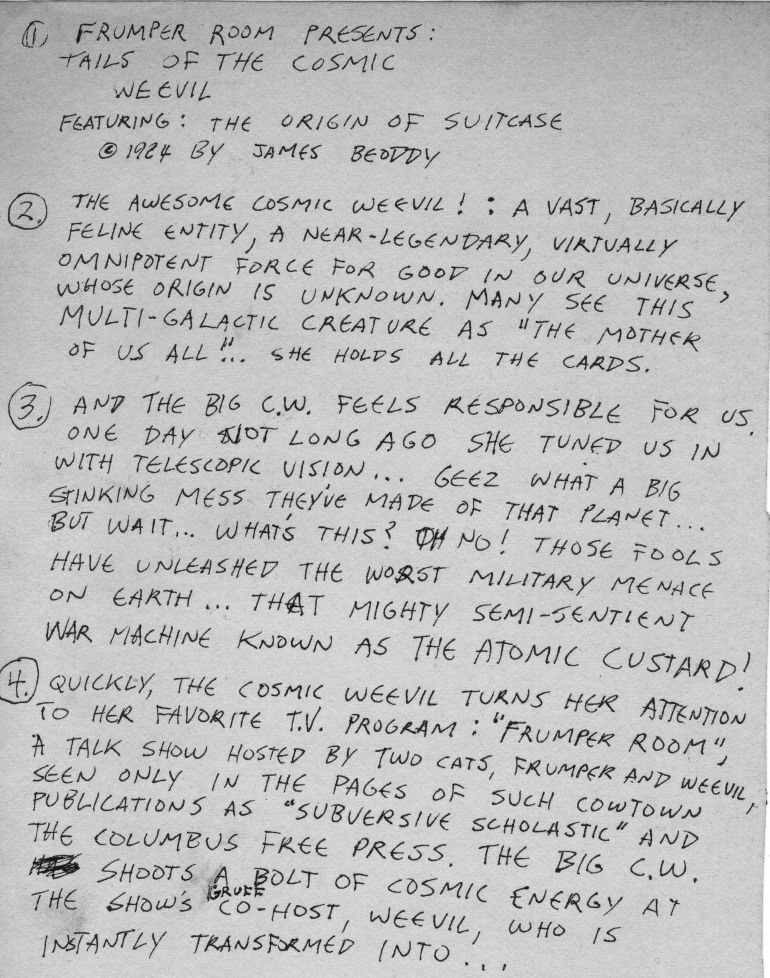 ① FRUMPER ROOM PRESENTS:
TAILS OF THE COSMIC
WEEVIL
FEATURING: THE ORIGIN OF SUITCASE
© 1984 BY JAMES BEODDY
②. THE AWESOME COSMIC WEEVIL! : A VAST, BASICALLY
FELINE ENTITY, A NEAR-LEGENDARY, VIRTUALLY
OMNIPOTENT FORCE FOR GOOD IN OUR UNIVERSE,
WHOSE ORIGIN IS UNKNOWN. MANY SEE THIS
MULTI-GALACTIC CREATURE AS "THE MOTHER
OF US ALL"... SHE HOLDS ALL THE CARDS.
③. AND THE BIG C.W. FEELS RESPONSIBLE FOR US.
ONE DAY NOT LONG AGO SHE TUNED US IN
WITH TELESCOPIC VISION... GEEZ WHAT A BIG
STINKING MESS THEY'VE MADE OF THAT PLANET...
BUT WAIT... WHAT'S THIS? OH NO! THOSE FOOLS
HAVE UNLEASHED THE WORST MILITARY MENACE
ON EARTH... THAT MIGHTY SEMI-SENTIENT
WAR MACHINE KNOWN AS THE ATOMIC CUSTARD!
④. QUICKLY, THE COSMIC WEEVIL TURNS HER ATTENTION
TO HER FAVORITE T.V. PROGRAM: "FRUMPER ROOM",
A TALK SHOW HOSTED BY TWO CATS, FRUMPER AND WEEVIL,
SEEN ONLY IN THE PAGES OF SUCH COWTOWN
PUBLICATIONS AS "SUBVERSIVE SCHOLASTIC" AND
THE COLUMBUS FREE PRESS. THE BIG C.W.
SHOOTS A BOLT OF COSMIC ENERGY AT
THE SHOW'S GRUFF CO-HOST, WEEVIL, WHO IS
INSTANTLY TRANSFORMED INTO...